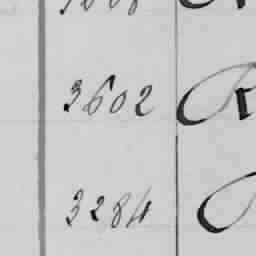 3602 R
3284